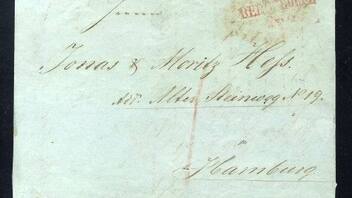 Herren
Jonas & Moritz Hess.
adr. Alter Steinweg No 19.
Hamburg